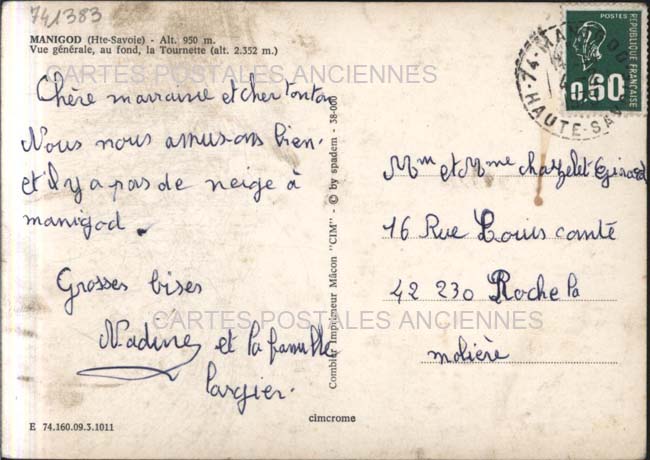 741383
MANIGOD (Hte-Savoie) - Alt. 950 m.
Vue générale, au fond, la Tournette (alt. 2.352 m.)
CARTES POSTALES ANCIENNES
Chère marraine et cher tonton
Nous nous amusons bien.
et il y a pas de neige à
manigod.
Grosses bises
Nadine et la famille
Largier.
CARTES POSTALES ANCIENNES
E 74.160.09.3.1011
Combier Imprimeur Mâcon "CIM" - © by spadem - 38-000
cimcrome
POSTES
RÉPUBLIQUE FRANÇAISE
0,60
74 - MANIGOD
HAUTE-SAV
Mm et Mme Chazelet Girard
16 Rue Louis comte
42 230 Roche la
molière